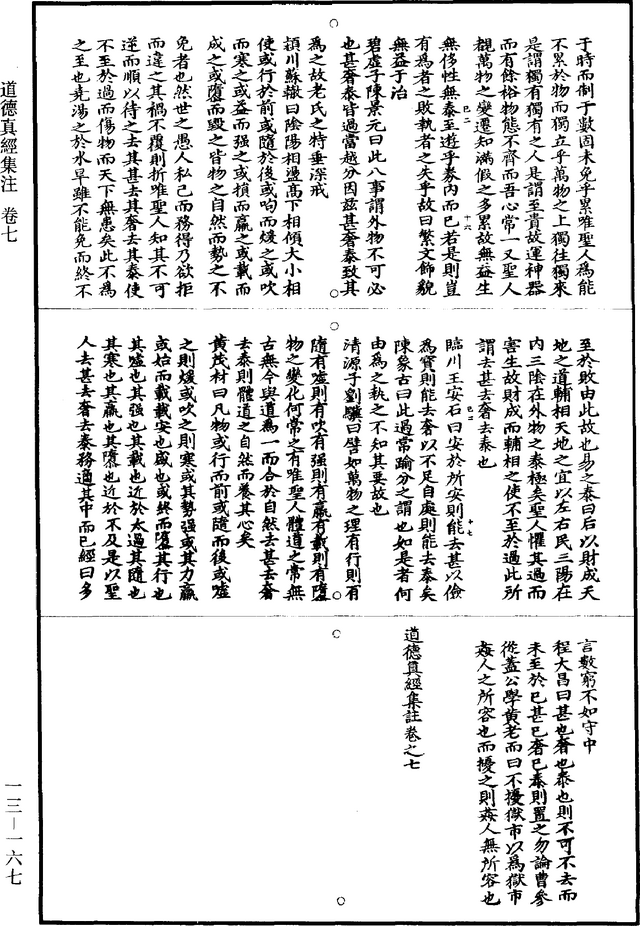 道德真經集注 卷七
于時而制于數固未免乎累唯聖人為能
不累於物而獨立乎萬物之上獨往獨來
是謂獨有獨有之人是謂至貴故運神器
而有餘裕物態不齊而吾心常一又聖人
覩萬物之變遷知滿假之多累故無益生
無侈性無泰至遊乎券內而已若是則豈
有為者之敗執者之失乎故曰繁文飾貌
無益于治
碧虛子陳景元曰此八事謂外物不可必
也甚奢泰皆過當越分因茲甚奢泰致其
為之故老氏之特垂深戒
潁川蘇轍曰陰陽相盪高下相傾大小相
使或行於前或隨於後或呴而煖之或吹
而寒之或益而强之或損而羸之或載而
成之或隳而毀之皆物之自然而勢之不
免者也然世之愚人私己而務得乃欲拒
而違之其禍不覆則折唯聖人知其不可
逆而順以待之去其甚去其奢去其泰使
不至於過而傷物而天下無患矣此不為
之至也堯湯之於水旱雖不能免而終不
至於敗由此故也易之泰曰后以財成天
地之道輔相天地之宜以左右民三陽在
內三陰在外物之泰極矣聖人懼其過而
害生故財成而輔相之使不至於過此所
謂去甚去奢去泰也
臨川王安石曰安於所安則能去甚以儉
為寶則能去奢以不足自處則能去泰矣
陳象古曰此過常踰分之謂也如是者何
由為之執之不知其要故也
清源子劉驥曰譬如萬物之理有行則有
隨有噓則有吹有强則有羸有載則有隳
物之變化何常之有唯聖人體道之常無
古無今與道為一而合於自然去甚去奢
去泰則體道之自然而養其心矣
黃茂材曰凡物或行而前或隨而後或噓
之則煖或吹之則寒或其勢强或其力羸
或始而載載安也盛也或終而隳其行也
其噓也其强也其載也近於太過其隨也
其寒也其羸也其隳也近於不及是以聖
人去甚去奢去泰務適其中而已經曰多
言數窮不如守中
程大昌曰甚也奢也泰也則不可不去而
未至於已甚已奢已泰則置之勿論曹參
從蓋公學黃老而曰不擾獄市以為獄市
姦人之所容也而擾之則姦人無所容也
道德真經集註卷之七
一三—一六七